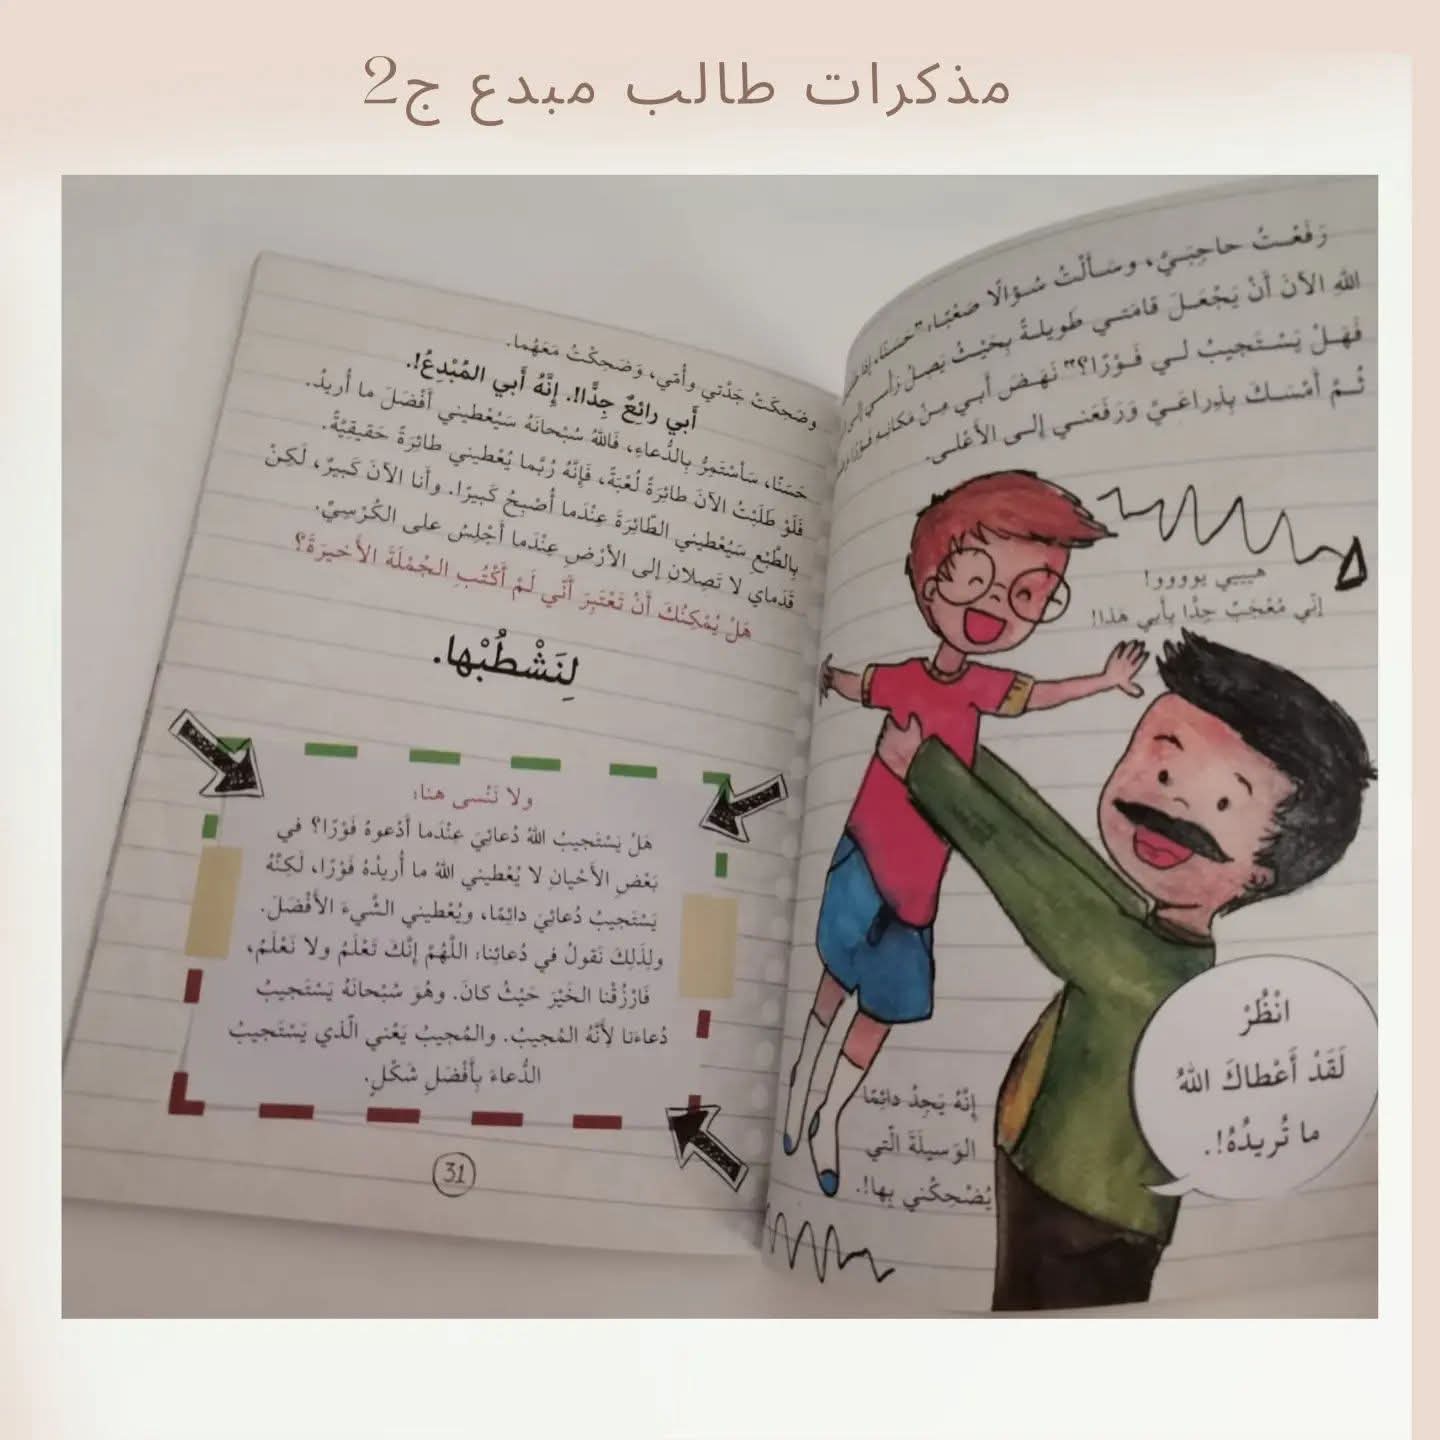 مذكرات طالب مبدع ج2
رَفَعْتُ حاجِبَيَّ، وسَأَلْتُ سُؤالًا صَعْبًا: "حَسَنًا، إذا
اللهِ الآنَ أَنْ يَجْعَلَ قامَتي طَويلةً بِحَيْثُ يَصِلُ رَأسي إلى
فَهَلْ يَسْتَجيبُ لي فَوْرًا؟" نَهَضَ أَبي مِنْ مَكانِهِ فَوْرًا
ثُمَّ أَمْسَكَ بِذِراعَيَّ وَرَفَعَني إلى الأَعْلى.
هيييي يوووو!
إنّي مُعْجَبٌ جِدًّا بِأَبي هَذا!
انْظُرْ
لَقَدْ أَعْطاكَ اللهُ
ما تُريدُهُ!.
إنَّهُ يَجِدُ دائِمًا
الوَسيلَةَ الّتي
يُضْحِكُني بِها!.
وضَحِكَتْ جَدَّتي وأُمّي، وَضَحِكْتُ مَعَهُما.
أَبي رائِعٌ جِدًّا!. إنَّهُ أَبي المُبْدِعُ!.
حَسَنًا، سَأَسْتَمِرُّ بِالدُّعاءِ، فَاللهُ سُبْحانَهُ سَيُعْطيني أَفْضَلَ ما أُريدُ.
فَلَوْ طَلَبْتُ الآنَ طائِرَةً لُعْبَةً، فَإِنَّهُ رُبَّما يُعْطيني طائِرَةً حَقيقِيَّةً.
بِالطَّبْعِ سَيُعْطيني الطّائِرَةَ عِنْدَما أُصْبِحُ كَبيرًا. وأَنا الآنَ كَبيرٌ، لَكِنْ
قَدَمايَ لا تَصِلانِ إلى الأَرْضِ عِنْدَما أَجْلِسُ على الكُرْسِيِّ.
هَلْ يُمْكِنُكَ أَنْ تَعْتَبِرَ أَنّي لَمْ أَكْتُبِ الجُمْلَةَ الأَخيرَةَ؟
لِنَشْطُبْها.
ولا نَنْسى هنا:
هَلْ يَسْتَجيبُ اللهُ دُعائِيَ عِنْدَما أَدْعوهُ فَوْرًا؟ في
بَعْضِ الأَحْيانِ لا يُعْطيني اللهُ ما أُريدُهُ فَوْرًا، لَكِنَّهُ
يَسْتَجيبُ دُعائِيَ دائِمًا، ويُعْطيني الشَّيءَ الأَفْضَلَ.
ولِذَلِكَ نَقولُ في دُعائِنا: اللَّهُمَّ إنَّكَ تَعْلَمُ ولا نَعْلَمُ،
فَارْزُقْنا الخَيْرَ حَيْثُ كانَ. وهُوَ سُبْحانَهُ يَسْتَجيبُ
دُعاءَنا لِأَنَّهُ المُجيبُ. والمُجيبُ يَعْني الّذي يَسْتَجيبُ
الدُّعاءَ بِأَفْضَلِ شَكْلٍ.
31